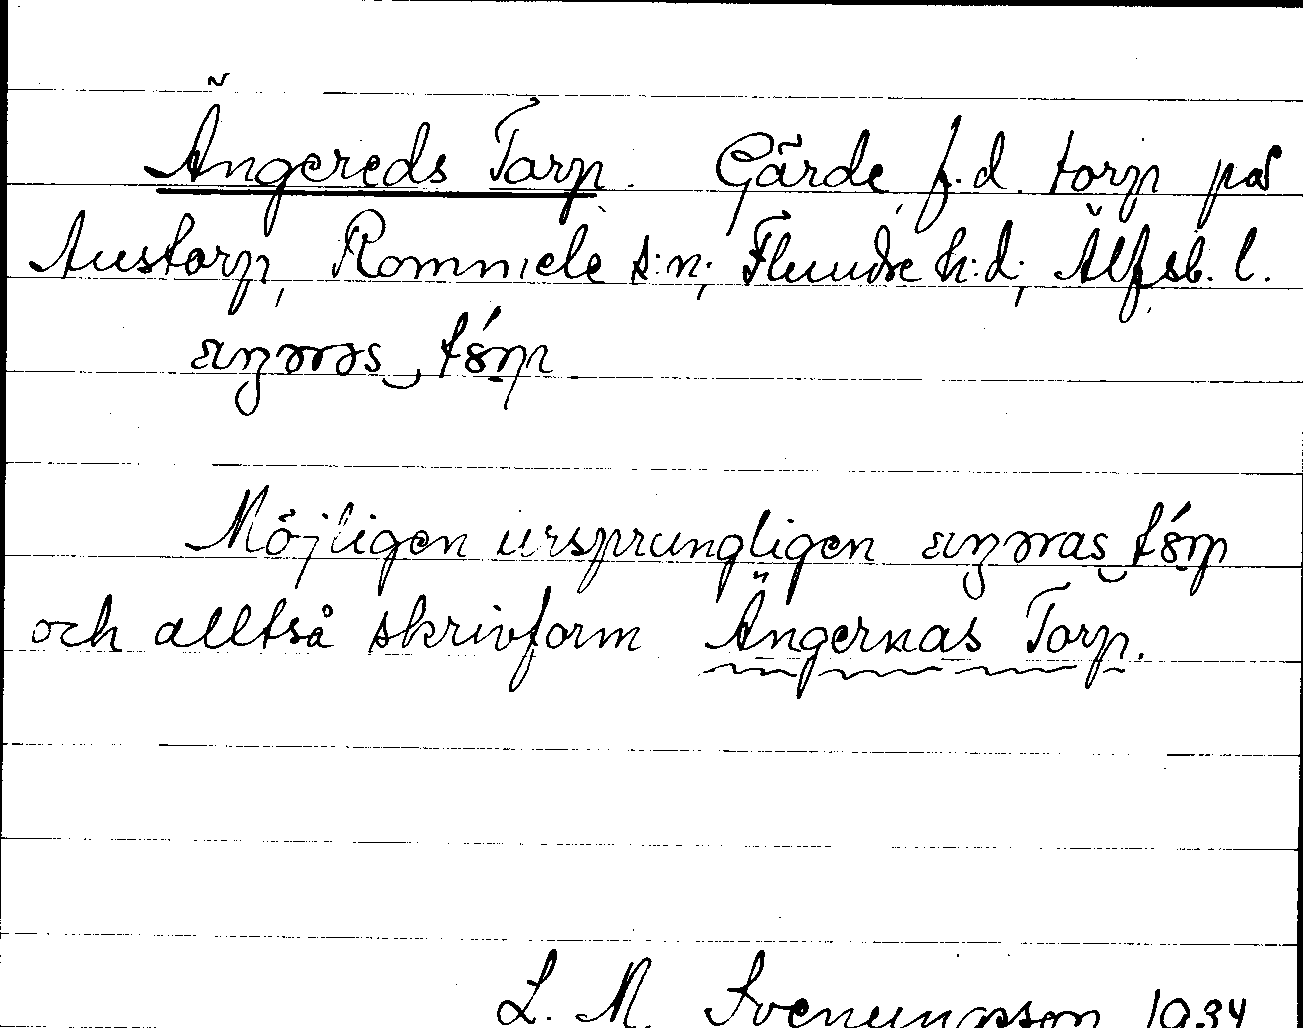 Ängereds Torp. Gärde, f.d. torp på
Austorp, Rommele s:n; Flundre h:d; Älfsb. l.
Möjligen ursprungligen
och alltså skrivform Ängernas Torp.
L. M. Svenungsson 1934